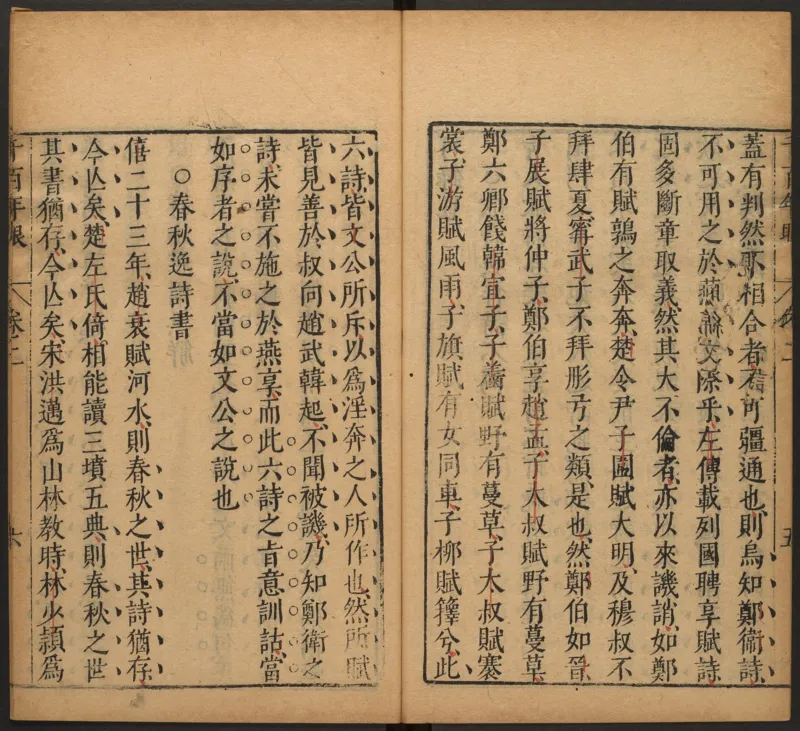 蓋有判然不相合者若可彊通也則烏知鄭衞詩
不可用之於燕饗交際乎左傳載列國聘享賦詩
固多斷章取義然其大不倫者亦以來譏誚如鄭
伯有賦鶉之奔奔楚令尹子圍賦大明及穆叔不
拜肆夏甯武子不拜彤弓之類是也然鄭伯如晉
子展賦將仲子鄭伯享趙孟子大叔賦野有蔓草
鄭六卿餞韓宣子子齹賦野有蔓草子大叔賦褰
裳子游賦風雨子旗賦有女同車子柳賦籜兮此
千百年眼
卷二
五
六詩皆文公所斥以爲淫奔之人所作也然所賦
皆見善於叔向趙武韓起不聞被譏乃知鄭衛之
詩未嘗不施之於燕享而此六詩之旨意訓詁當
如序者之說不當如文公之說也
○春秋逸詩書
僖二十三年趙衰賦河水則春秋之世其詩猶存
今亾矣楚左氏倚相能讀三墳五典則春秋之世
其書猶存今亾矣宋洪邁爲山林教時林少頴爲
千百年眼
卷二
六